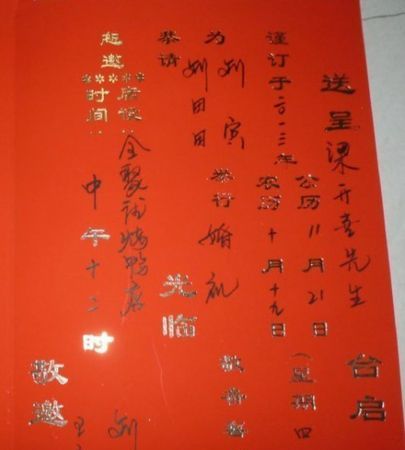 送呈 梁开喜先生 台启
谨订于二〇一三年 公历11月21日(星期四
农历十月十九日
为 刘寅 举行 婚礼 敬备喜
刘田田
恭请 光临
邀
席设:全聚 烤鸭店
时间:中午十二时
敬邀
刘
王